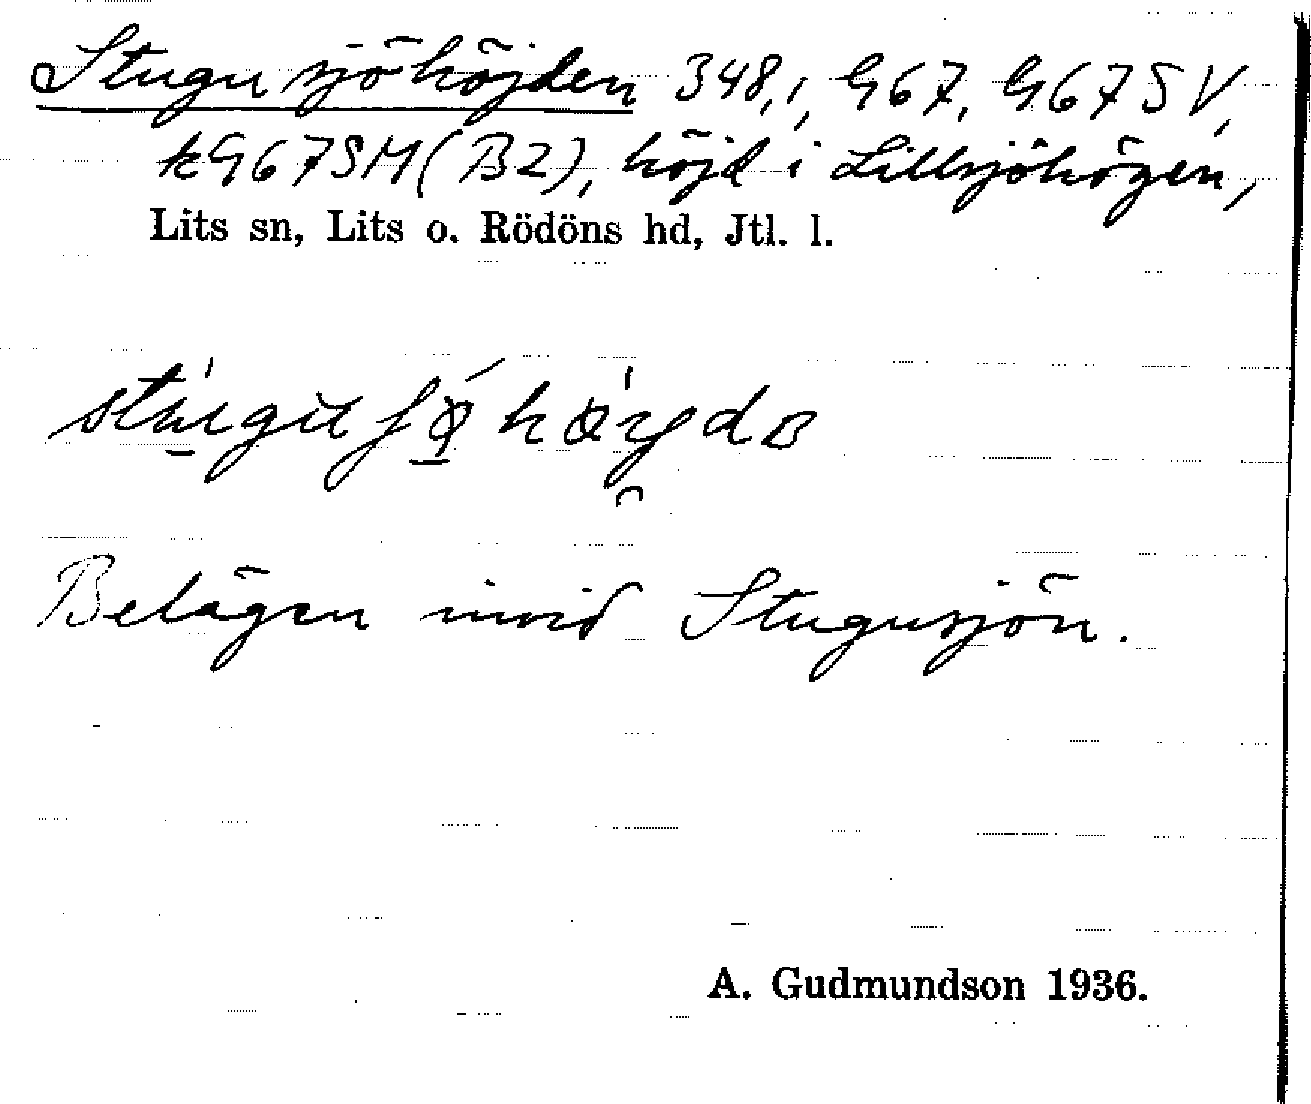 Stugusjöhöjden 348,1, G67, G67SV,
kG67SM(B2), höjd i Lillsjöhögen,
Lits sn, Lits o. Rödöns hd, Jtl. l.
Belägen invid Stugusjön.
A. Gudmundson 1936.